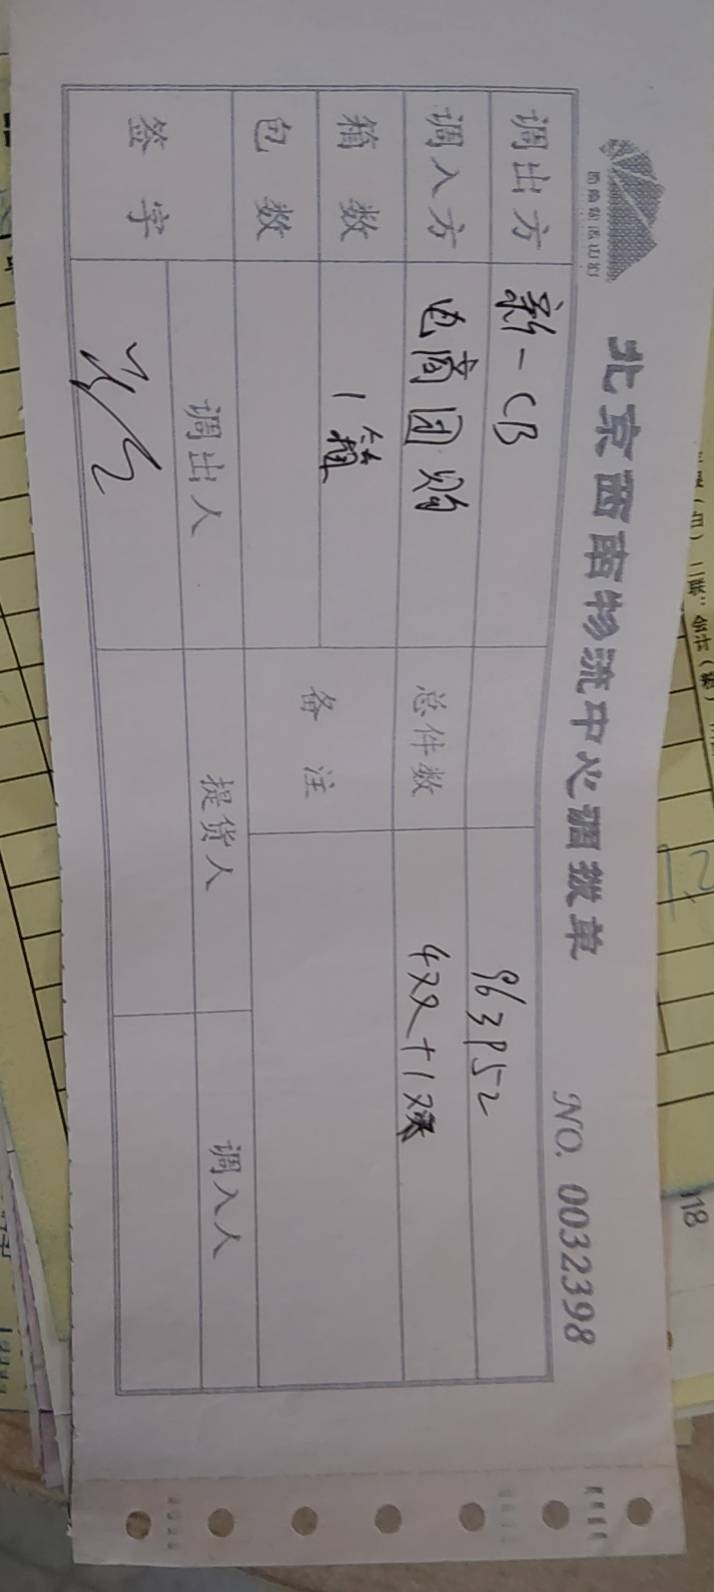 北京西南物流中心调拨单
NO. 0032398
调出方 新一CB 963P52
调入方 电商团购 总件数 4双+1双
箱数 1箱 备注
包数
签字 调出人 提货人 调入人